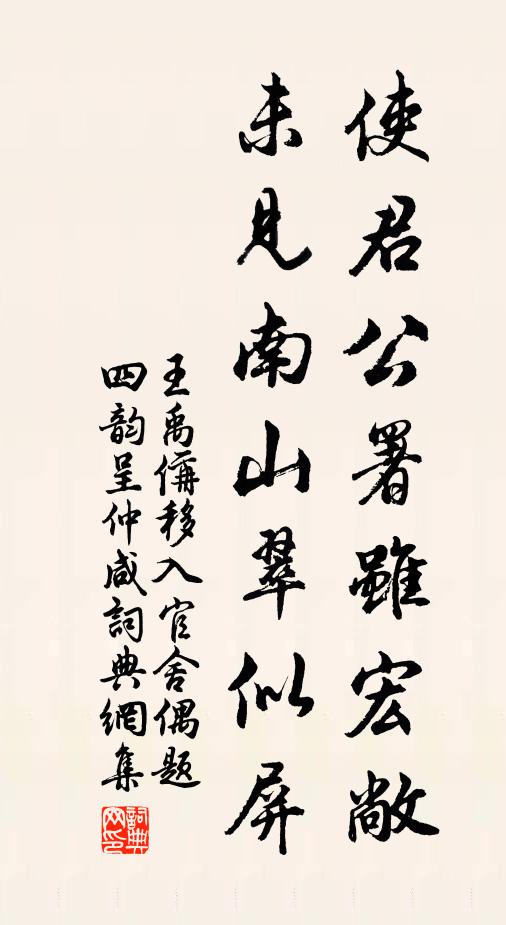 使君公署雖宏敞
未見南山翠似屏
王禹偁移入官舍偶題
四韵呈仲咸詞典網集
詞典
网印